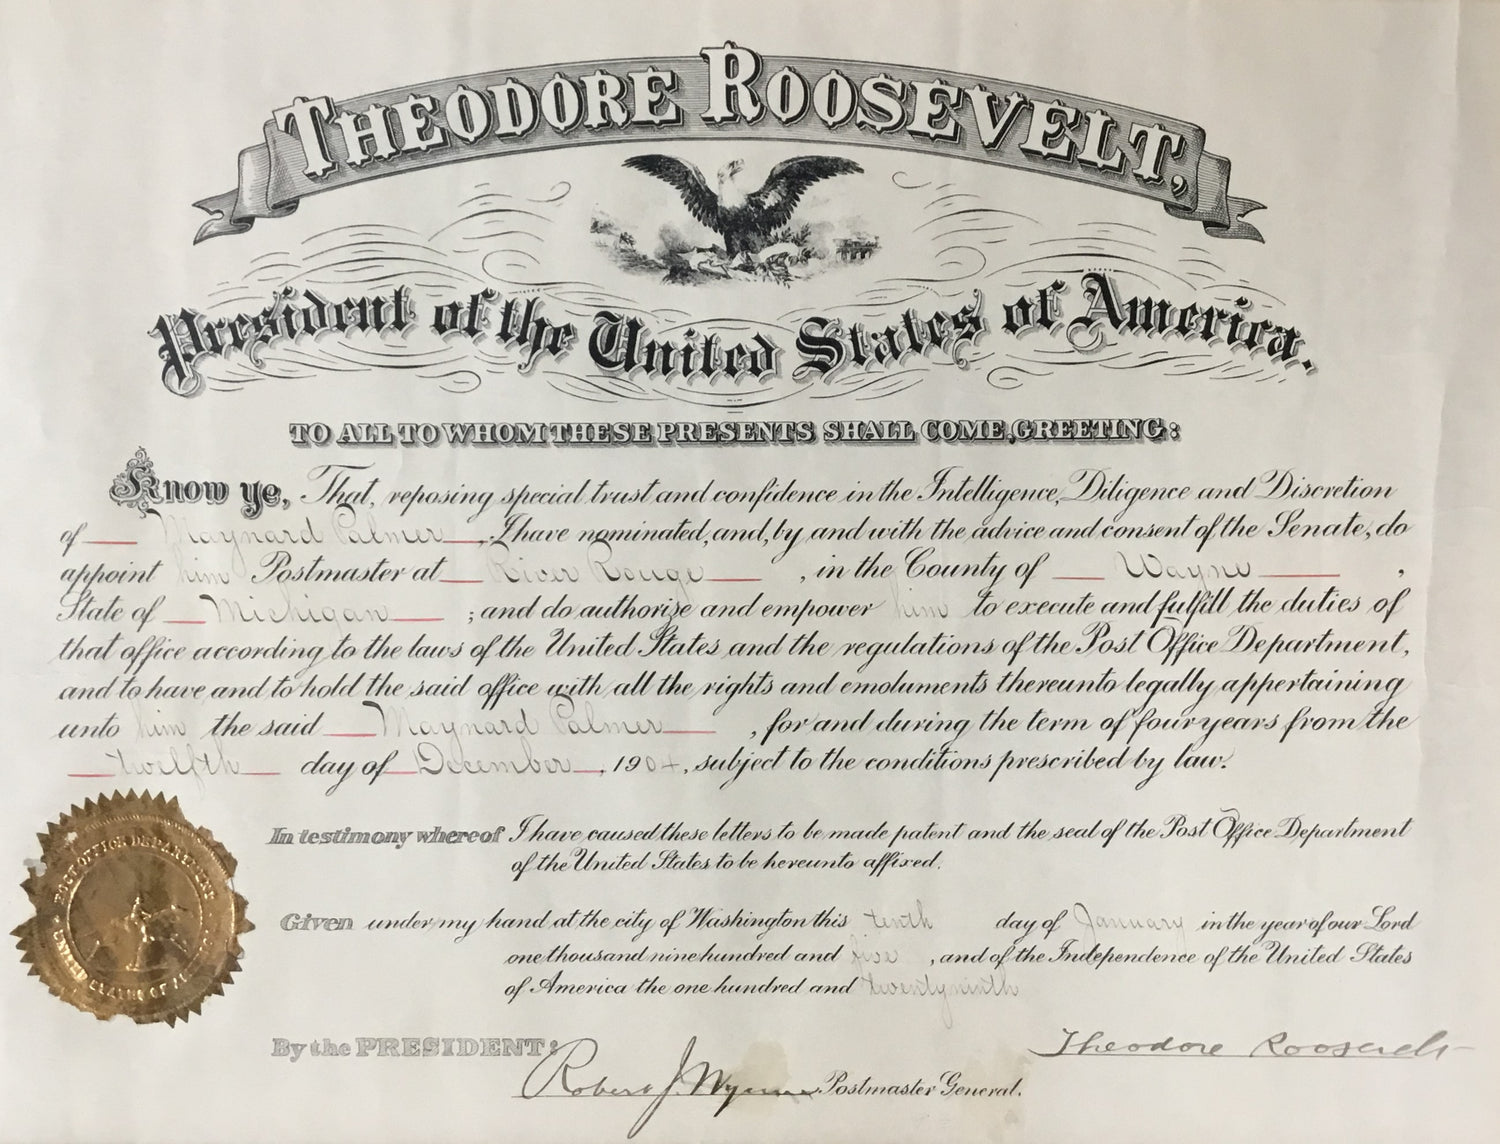 THEODORE ROOSEVELT,
President of the United States of America.
TO ALL TO WHOM THESE PRESENTS SHALL COME, GREETING:
Know ye, That, reposing special trust and confidence in the Intelligence, Diligence and Discretion
of Maynard Palmer, I have nominated, and, by and with the advice and consent of the Senate, do
appoint him Postmaster at River Rouge, in the County of Wayne,
State of Michigan; and do authorize and empower him to execute and fulfill the duties of
that office according to the laws of the United States and the regulations of the Post Office Department,
and to have and to hold the said office with all the rights and emoluments thereunto legally appertaining
unto him the said Maynard Palmer, for and during the term of four years from the
twelfth day of December, 1904, subject to the conditions prescribed by law.
In testimony whereof I have caused these letters to be made patent and the seal of the Post Office Department
of the United States to be hereunto affixed.
Given under my hand at the city of Washington this tenth day of January in the year of our Lord
one thousand nine hundred and five, and of the Independence of the United States
of America the one hundred and twentyninth
By the PRESIDENT:
Theodore Roosevelt
Robert J. Wynne Postmaster General.
POST OFFICE DEPARTMENT
UNITED STATES OF AMERICA